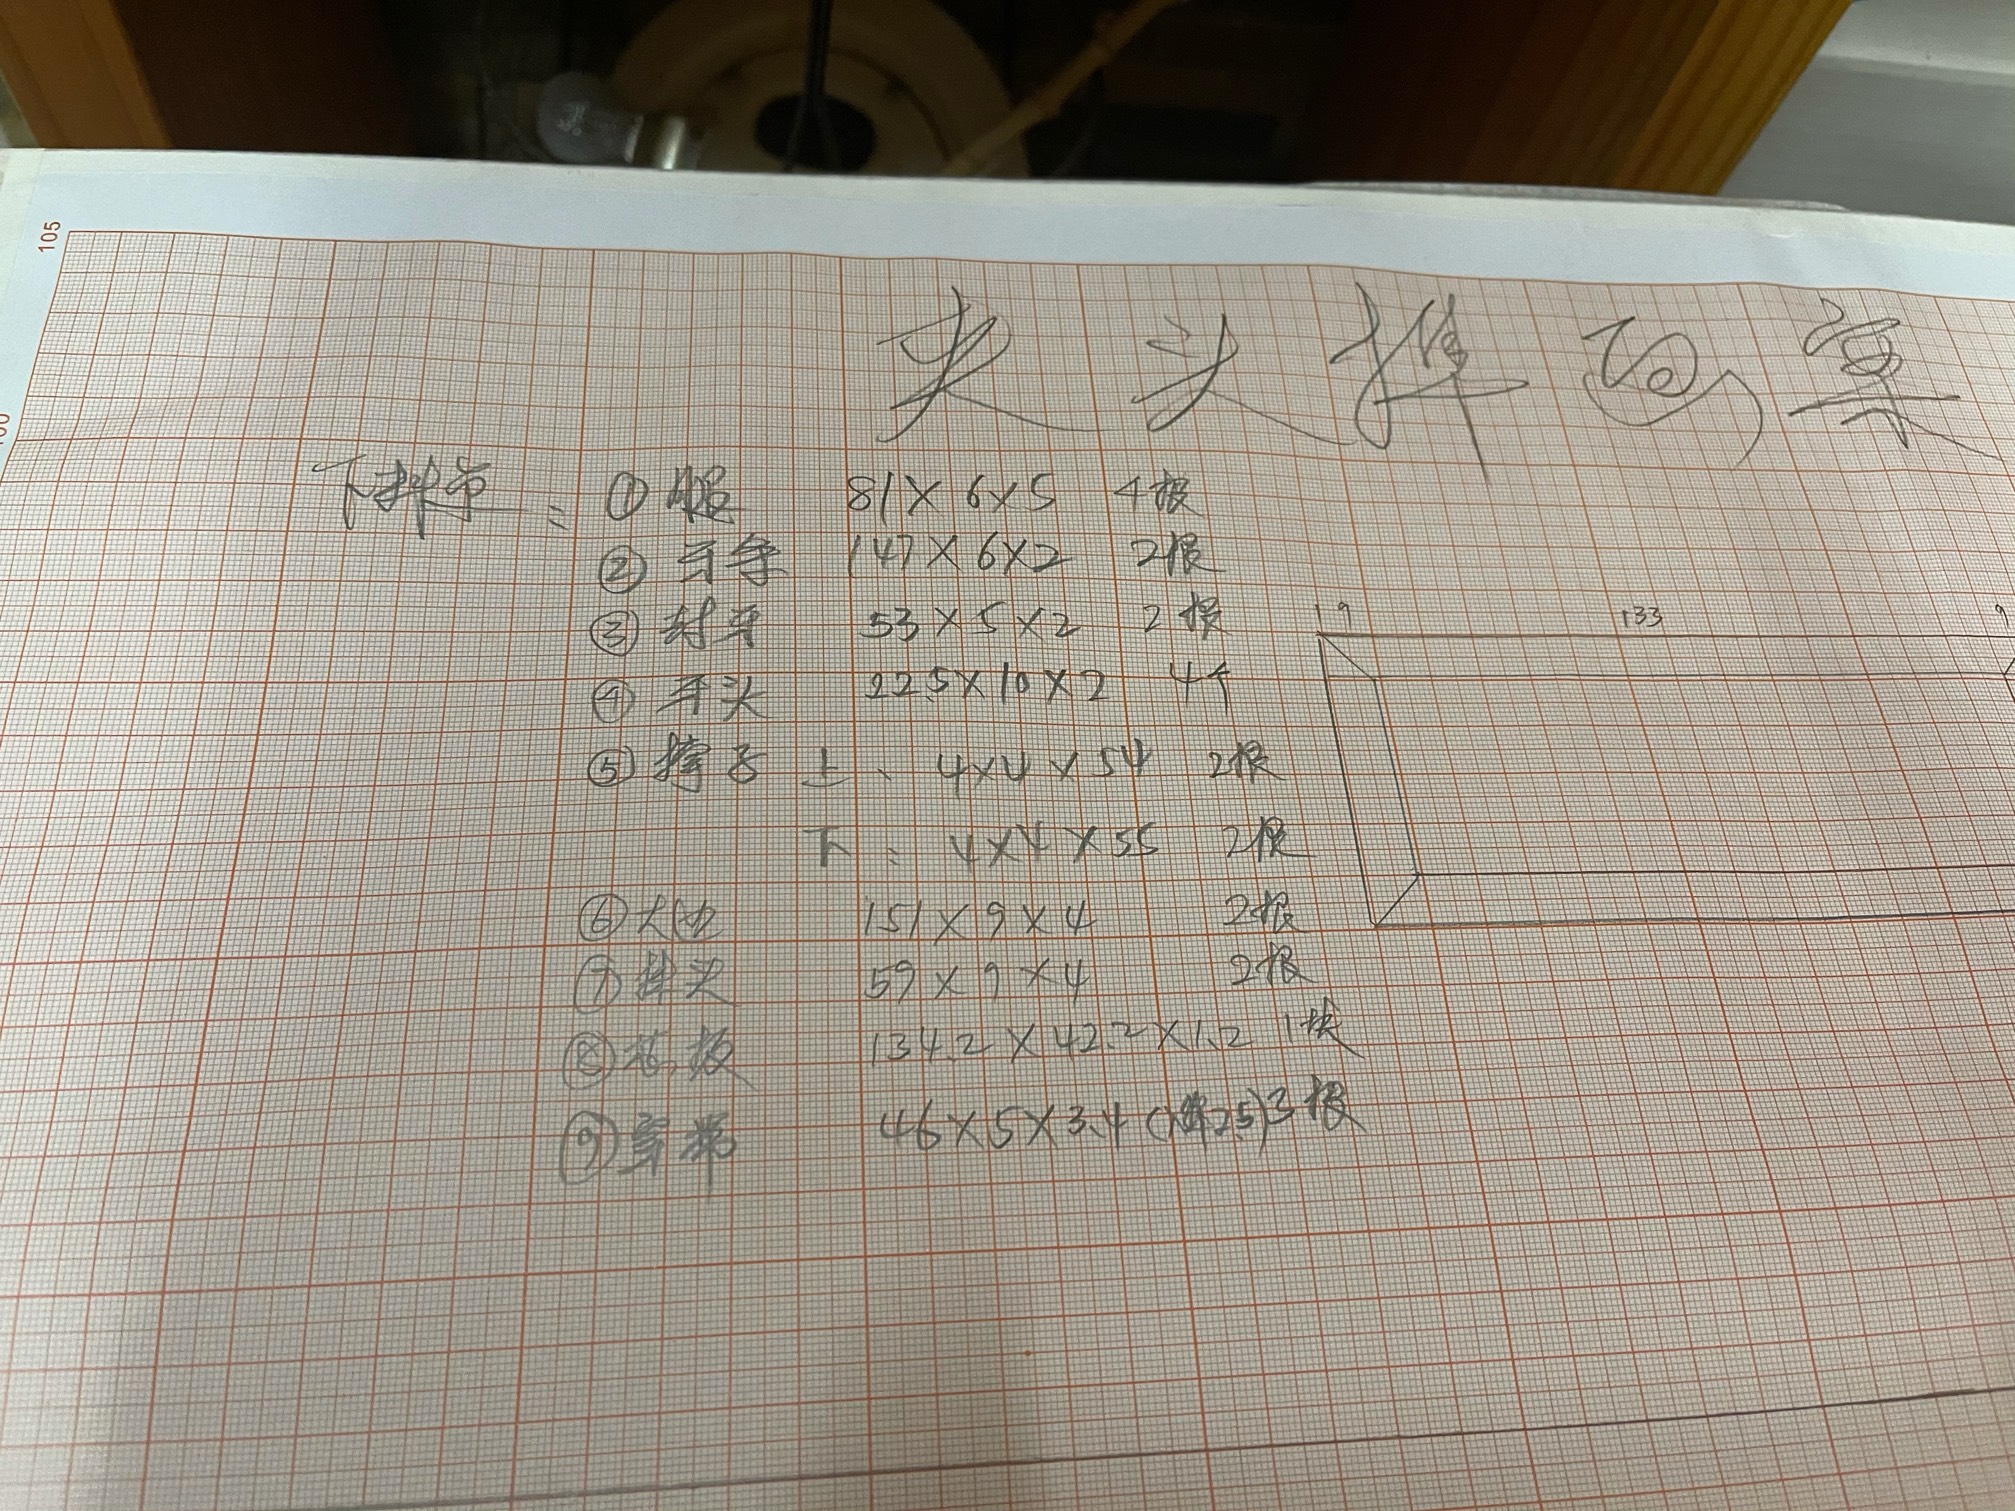 105
100
夹头榫画案
下料单：① 腿 81×6×5 4根
② 牙条 147×6×2 2根
③ 封牙 53×5×2 2根
④ 牙头 22.5×10×2 4个
⑤ 撑子 上、 4×4×54 2根
下： 4×4×55 2根
⑥ 大边 151×9×4 2根
⑦ 抹头 59×9×4 2根
⑧ 芯板 134.2×42.2×1.2 1块
⑨ 穿带 46×5×3.4 3根
9 133